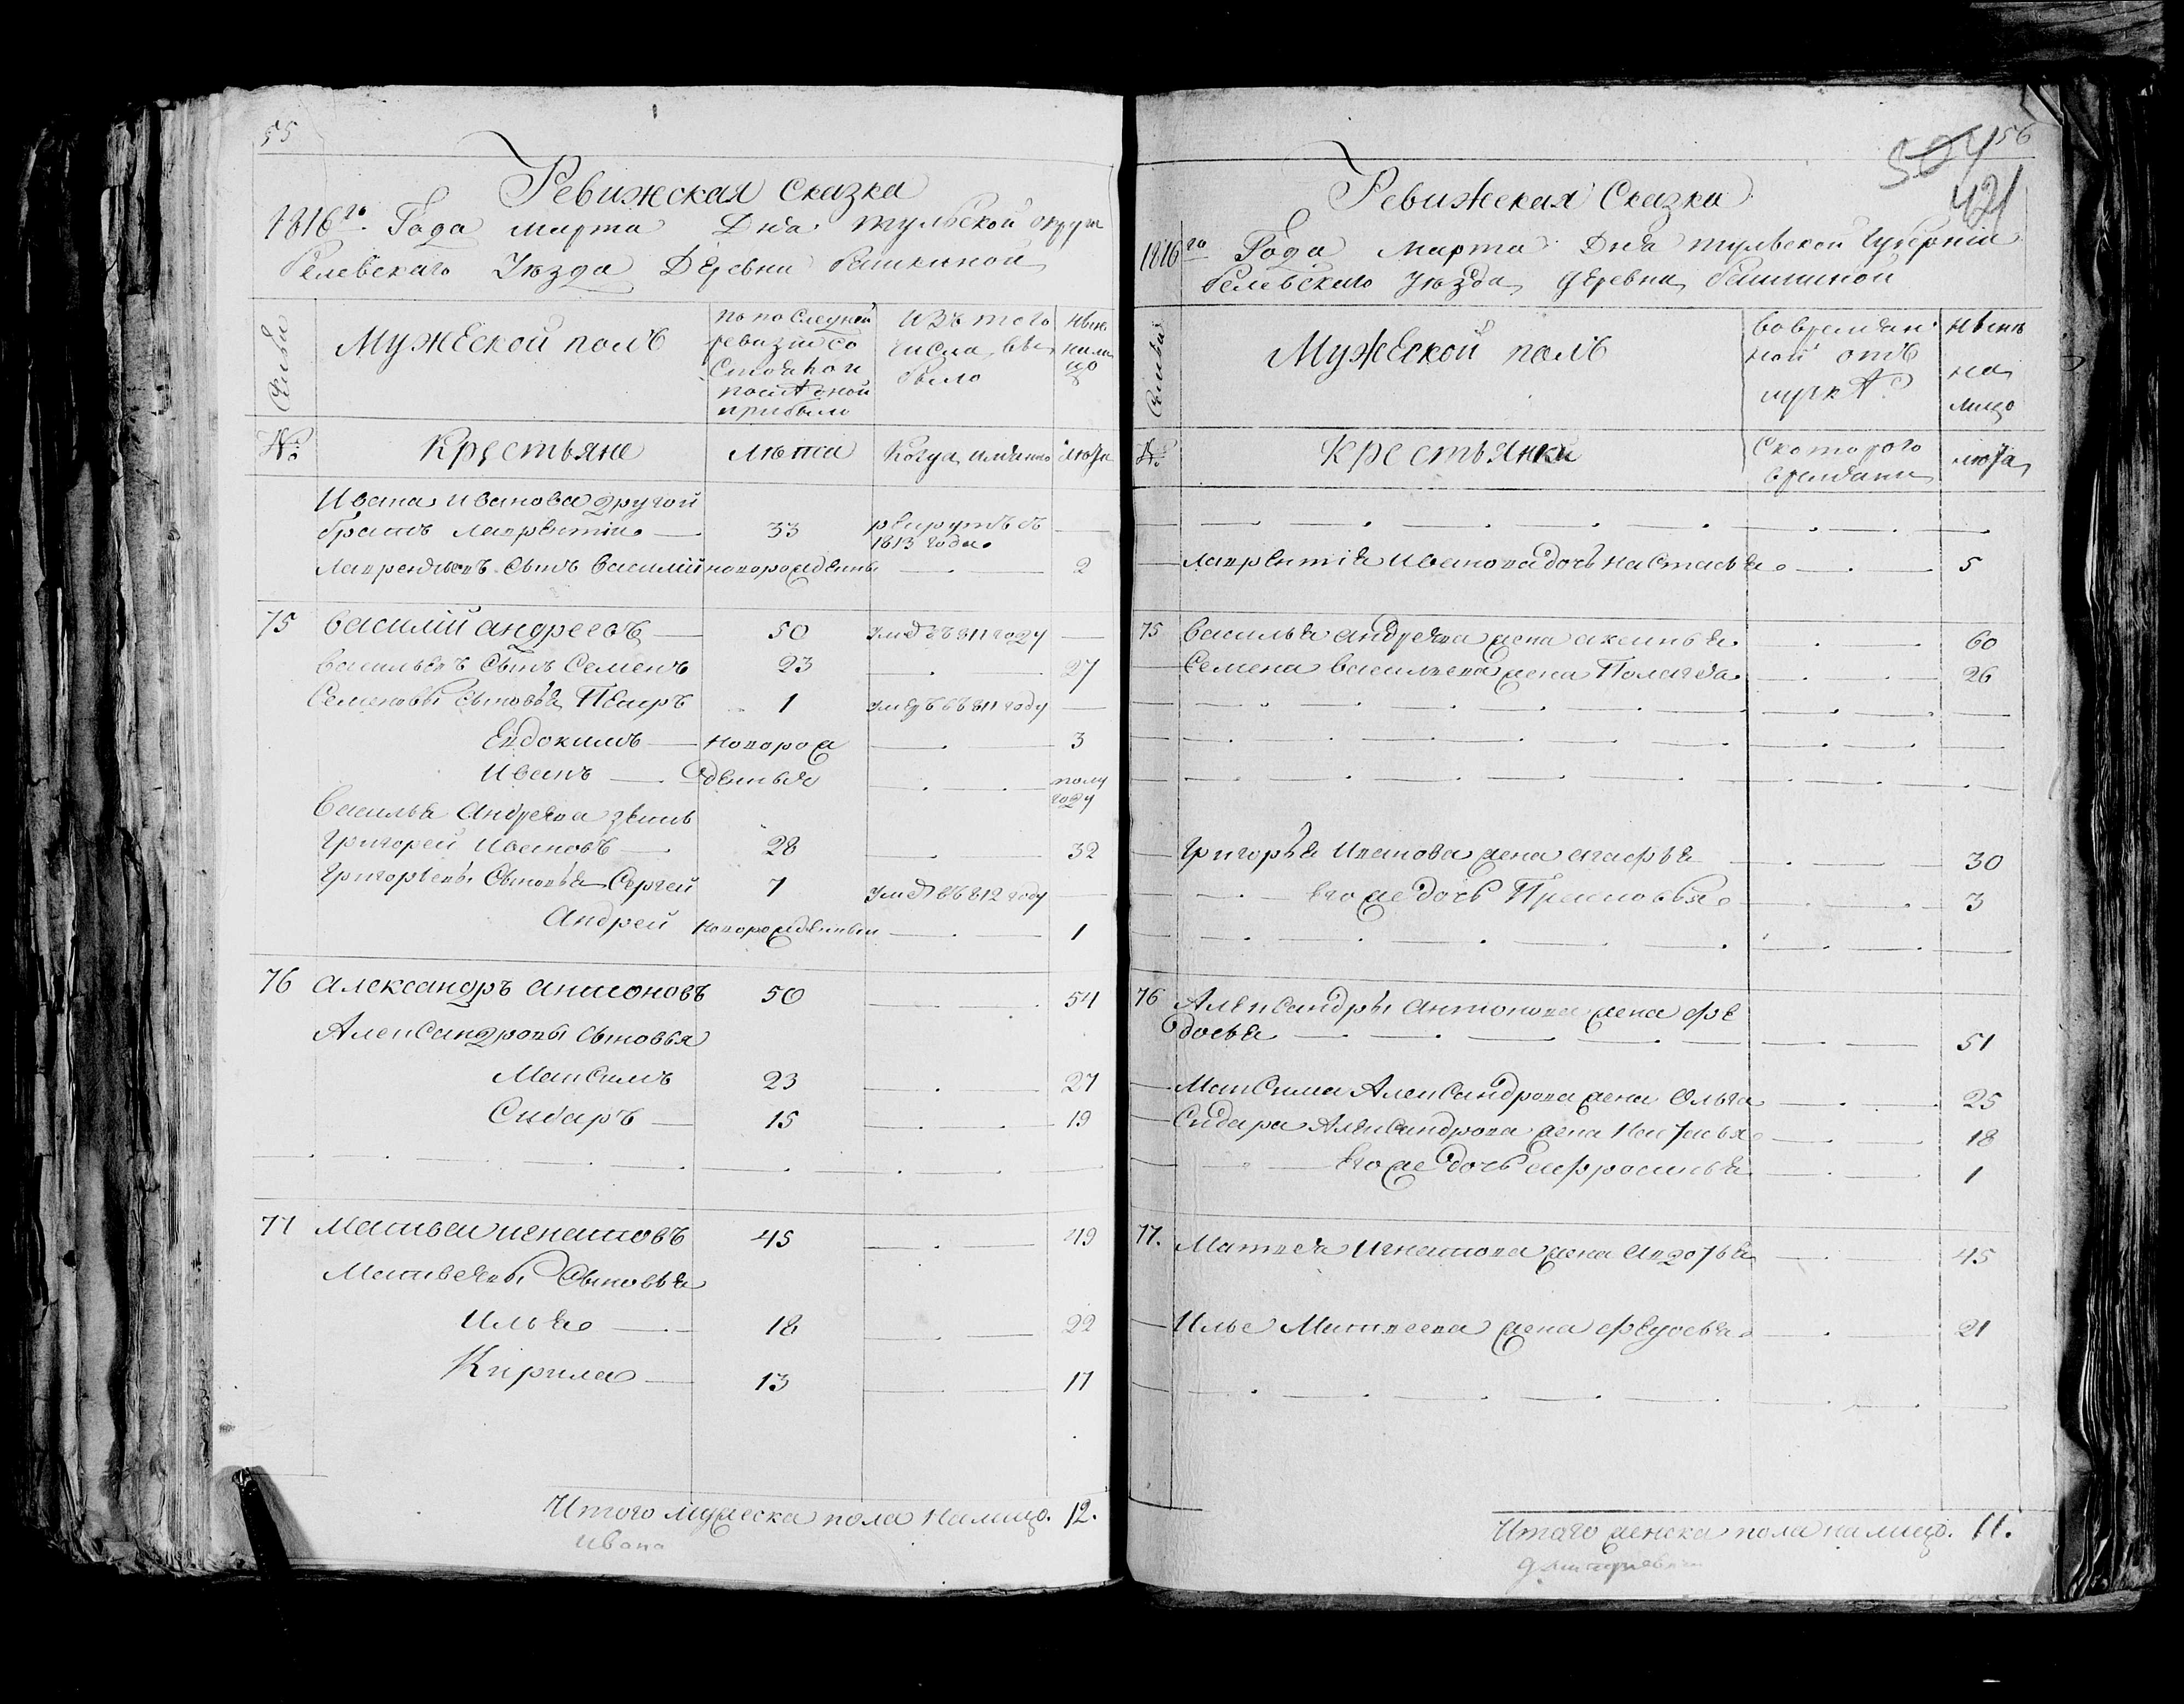 55
Ревижская сказка
1816го Года марта Дня тульской округи
Белевскаго Уезда Деревни
Семьи
Мужеской полъ
по последней ревизии состояло и после оной прибыло
Изъ того числа выбыло
Ныне на лицо
№
Крестьяне
Лета
Когда имянно
лета
Ивана Иванова другой
братъ Лаврентии 33 рекрутъ съ 1813 года
Лаврентьевъ Сынъ василий новорожденны 2
75 василий андреевъ 50 умеръ въ 811 году
васильевъ Сынъ Семенъ 23 27
Семеновы сыновья Петръ 1 умеръ въ 811 году
Евдокимъ новорож 3
Иванъ денныя полу году
Василья Андреева зять
Григорей Ивановъ 28 32
Григорьевы Сыновья Сергей 7 умеръ въ 812 году
Андрей новорожденныи 1
76 александръ антоновъ 50 54
Александровы сыновья
Максимъ 23 27
Сидаръ 15 19
77 матвеи игнатовъ 45 49
Матвеевы Сыновья
Илья 18 22
Кирила 13 17
Итого мужеска пола на лицо. 12.
ивана
56
504
421
Ревижская Сказка
1816го Года Марта Дня тульской Губернии
Белевскаго Уезда деревни
Семьи
Мужеской полъ
во временной отлучке
Ныне на лицо
№
крестьянки
Скоторого времяни
лета
Лаврентия Иванова дочь Настасья 5
75 василья андреева жена аксинья 60
Семена васильева жена Полагея 26
Григорья Иванова жена агафья 30
ево же дочь Прасковья 3
76 Александры антонова жена фе
досья 51
Максима Александрова жена Ольга 25
Сидара Александрова жена Настасья 18
ево же дочь афросинья 1
77. Матвея Игнатова жена Авдотья 45
Илье Матвеева жена федосья 21
Итаго женска пола на лицо. 11.